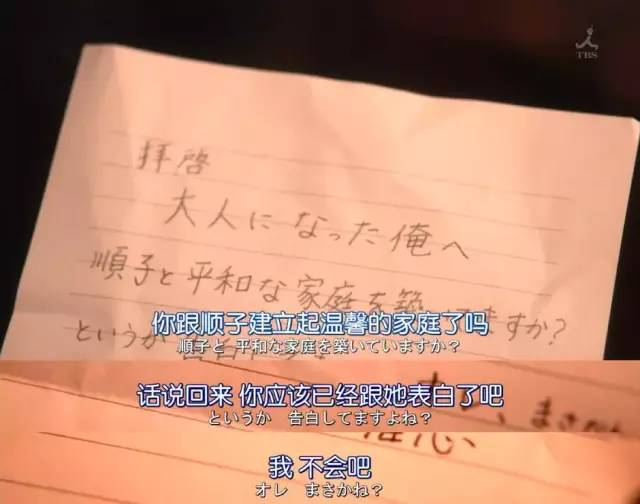 TBS
拝啓
大人になった俺へ
順子と平和な家庭を築
ますか?
というか
你跟顺子建立起温馨的家庭了吗
順子と 平和な家庭を築いていますか?
话说回来 你应该已经跟她表白了吧
というか 告白してますよね?
まさか
我 不会吧
オレ まさかね?